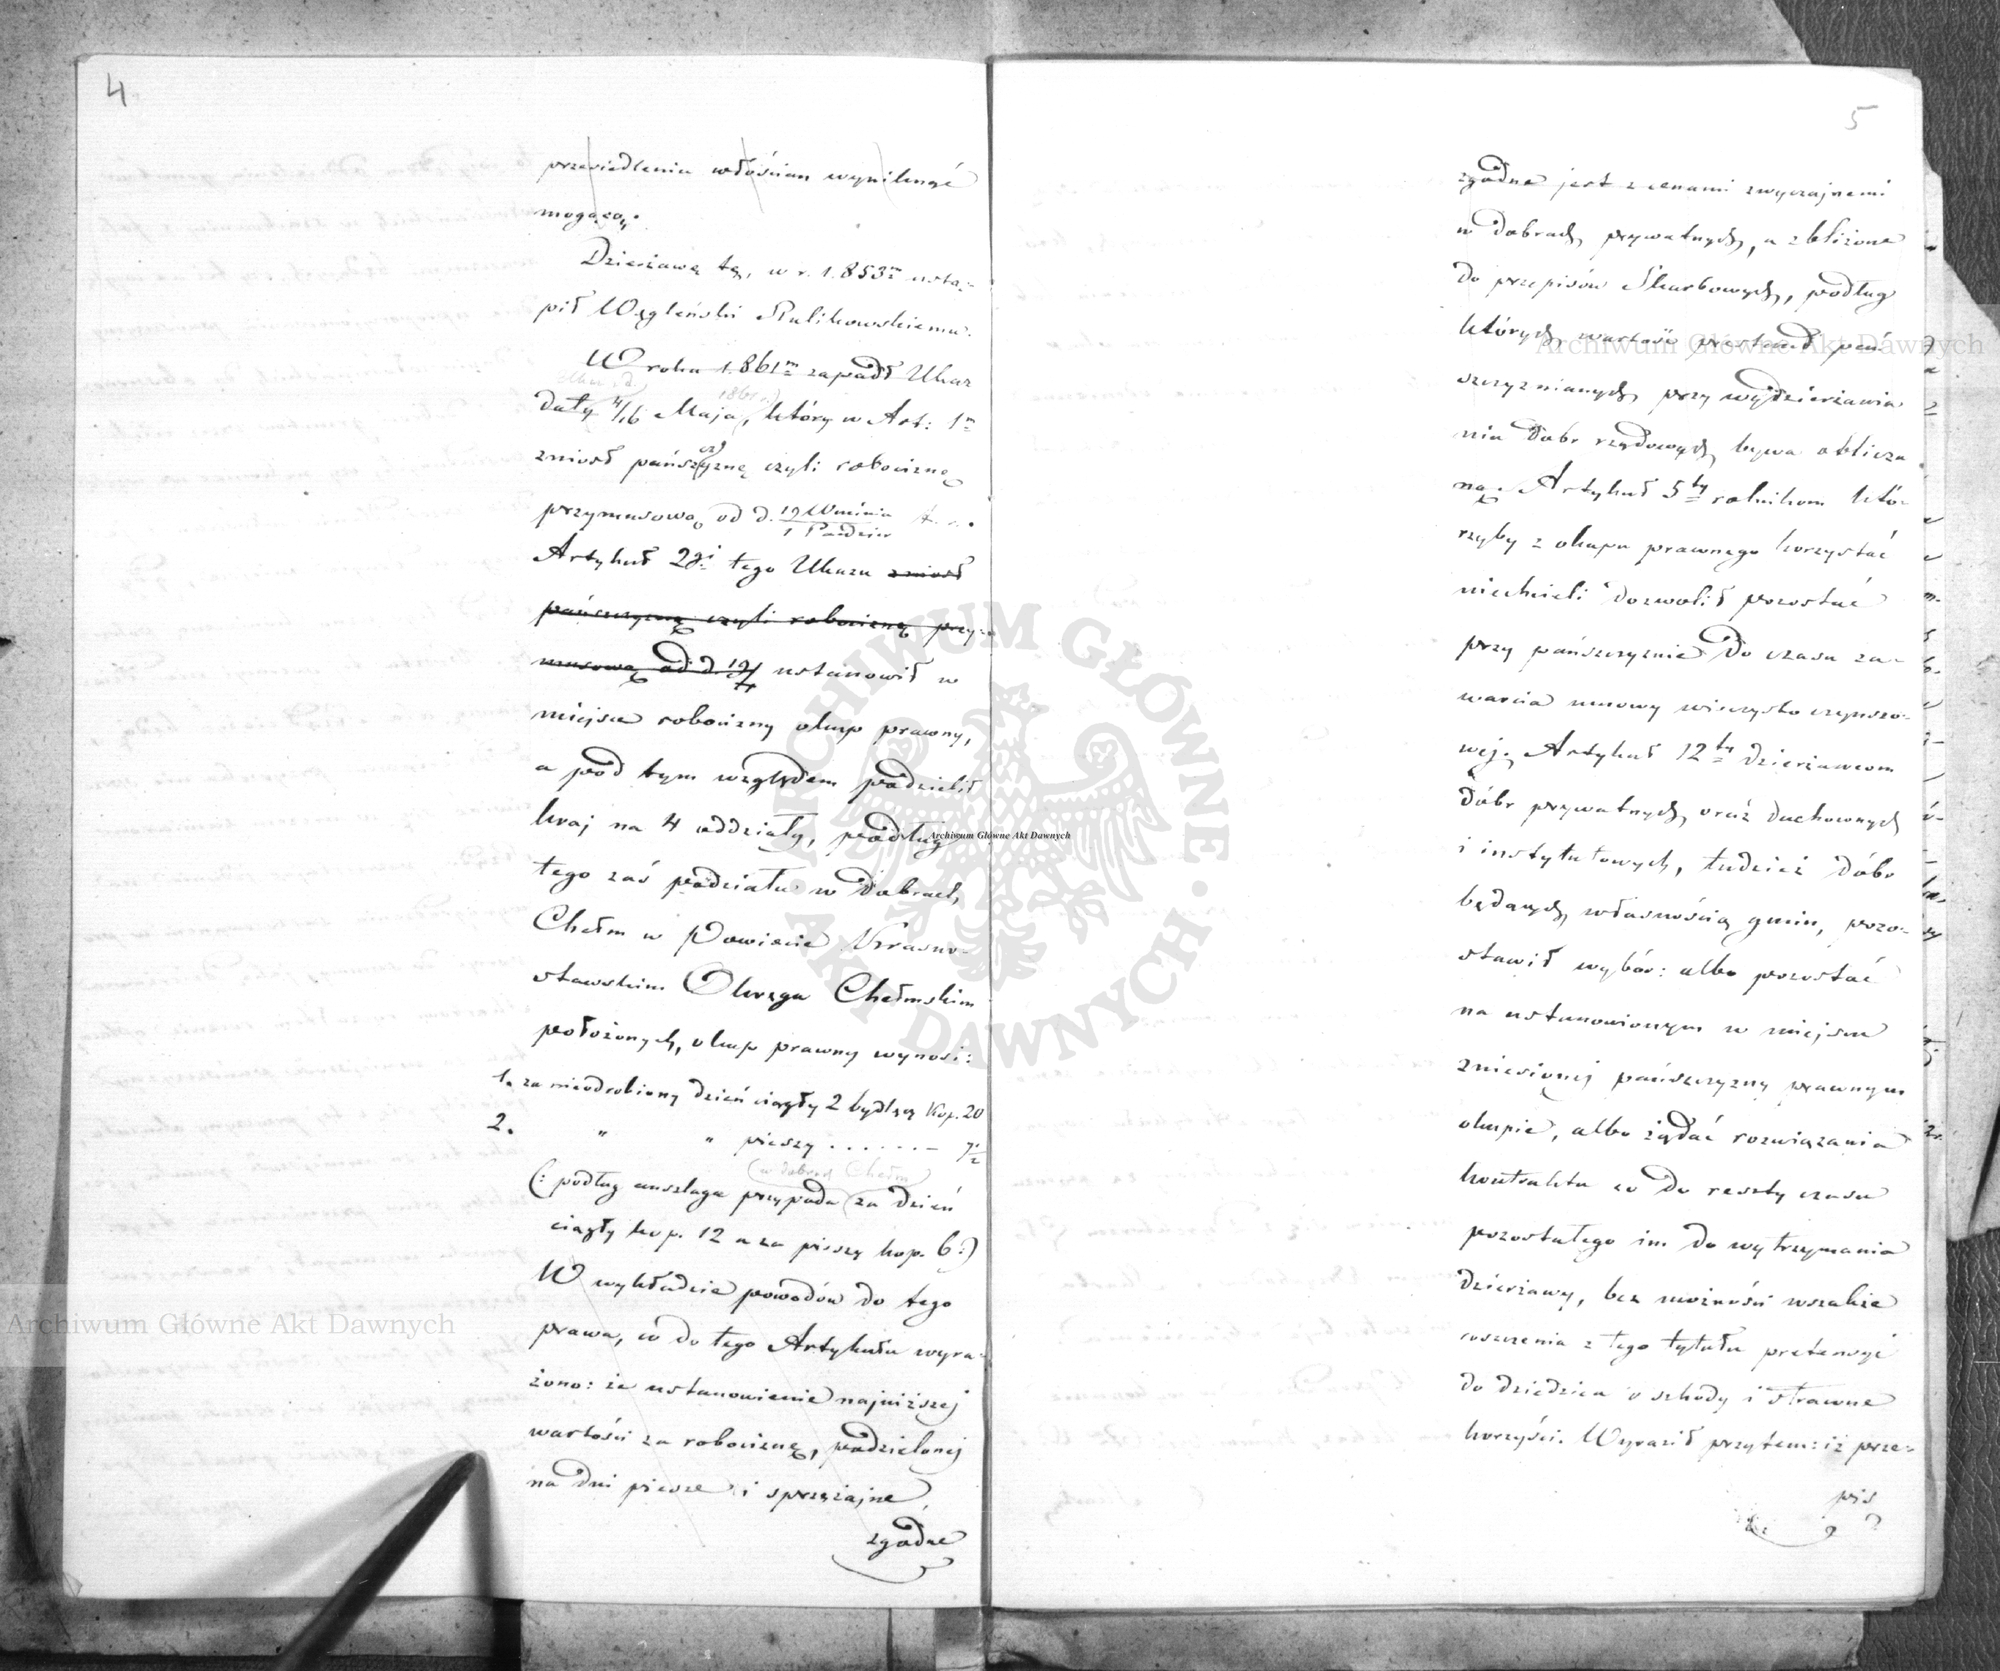 4
przesiedlenia włościan wyniknąć
mogącą.
Dzierżawę tę, w r. 1.853m ustą-
pił Węgleński Stulikowskiemu.
W roku 1.861m zapadł Ukaz
1861 r.
daty 4/16 Maja, który w Art: 1m
zniosł pańszczyznę czyli robociznę
przymusową od d. 19 Września
1 Paździer
Artykuł 2gi tego Ukazu zniosł
pańszczyznę czyli robociznę przy-
musową od d. 19/1 ustanowił w
miejsce robocizny okup prawny,
a pod tym względem podzielił
kraj na 4 oddziały, podług
tego zaś podziału w dobrach
Chełm w Powiecie Krasno-
stawskim Okręgu Chełmskim
położonych, okup prawny wynosi:
1. za nieodrobiony dzień ciągły 2 bydlęcy Kop. 20
2. " " pieszy . . . . . . – 7½
(w dobrach Chełm)
(: podług anszlagu przypada za dzień
ciągły kop. 12 a za pieszy kop. 6:)
W wykładzie powodów do tego
prawa, co do tego Artykułu wyra-
żono: że ustanowienie najniższej
wartości za robociznę, podzielonej
na dni piesze i sprzężajne,
zgodne
5
zgodne jest z cenami zwyczajnemi
w dobrach prywatnych, a zbliżone
do przepisów Skarbowych, podług
których wartość prestacd pań-
szczyznianych przy wydzierżawia
niu dobr rządowych bywa oblicza
ną. Artykuł 5ty rolnikom któ-
rzyby z okupu prawnego korzystać
niechcieli dozwolił pozostać
przy pańszczyznie do czasu za-
warcia umowy wieczysto czynszo-
wej. Artykuł 12ty dzierżawcom
dóbr prywatnych, oraz duchownych
i instytutowych, tudzież dóbr
będących własnością gmin, pozo-
stawił wybór: albo pozostać
na ustanowionym w miejsce
zniesionej pańszczyzny prawnym
okupie, albo żądać rozwiązania
kontraktu co do reszty czasu
pozostałego im do wytrzymania
dzierżawy, bez możności wszakże
roszczenia z tego tytułu pretensyi
do dziedzica o szkody i strawne
korzyści. Wyraził przytem: iż prze-
pis
Archiwum Główne Akt Dawnych
Archiwum Główne Akt Dawnych
Archiwum Główne Akt Dawnych
ARCHIWUM GŁÓWNE · AKT DAWNYCH ·